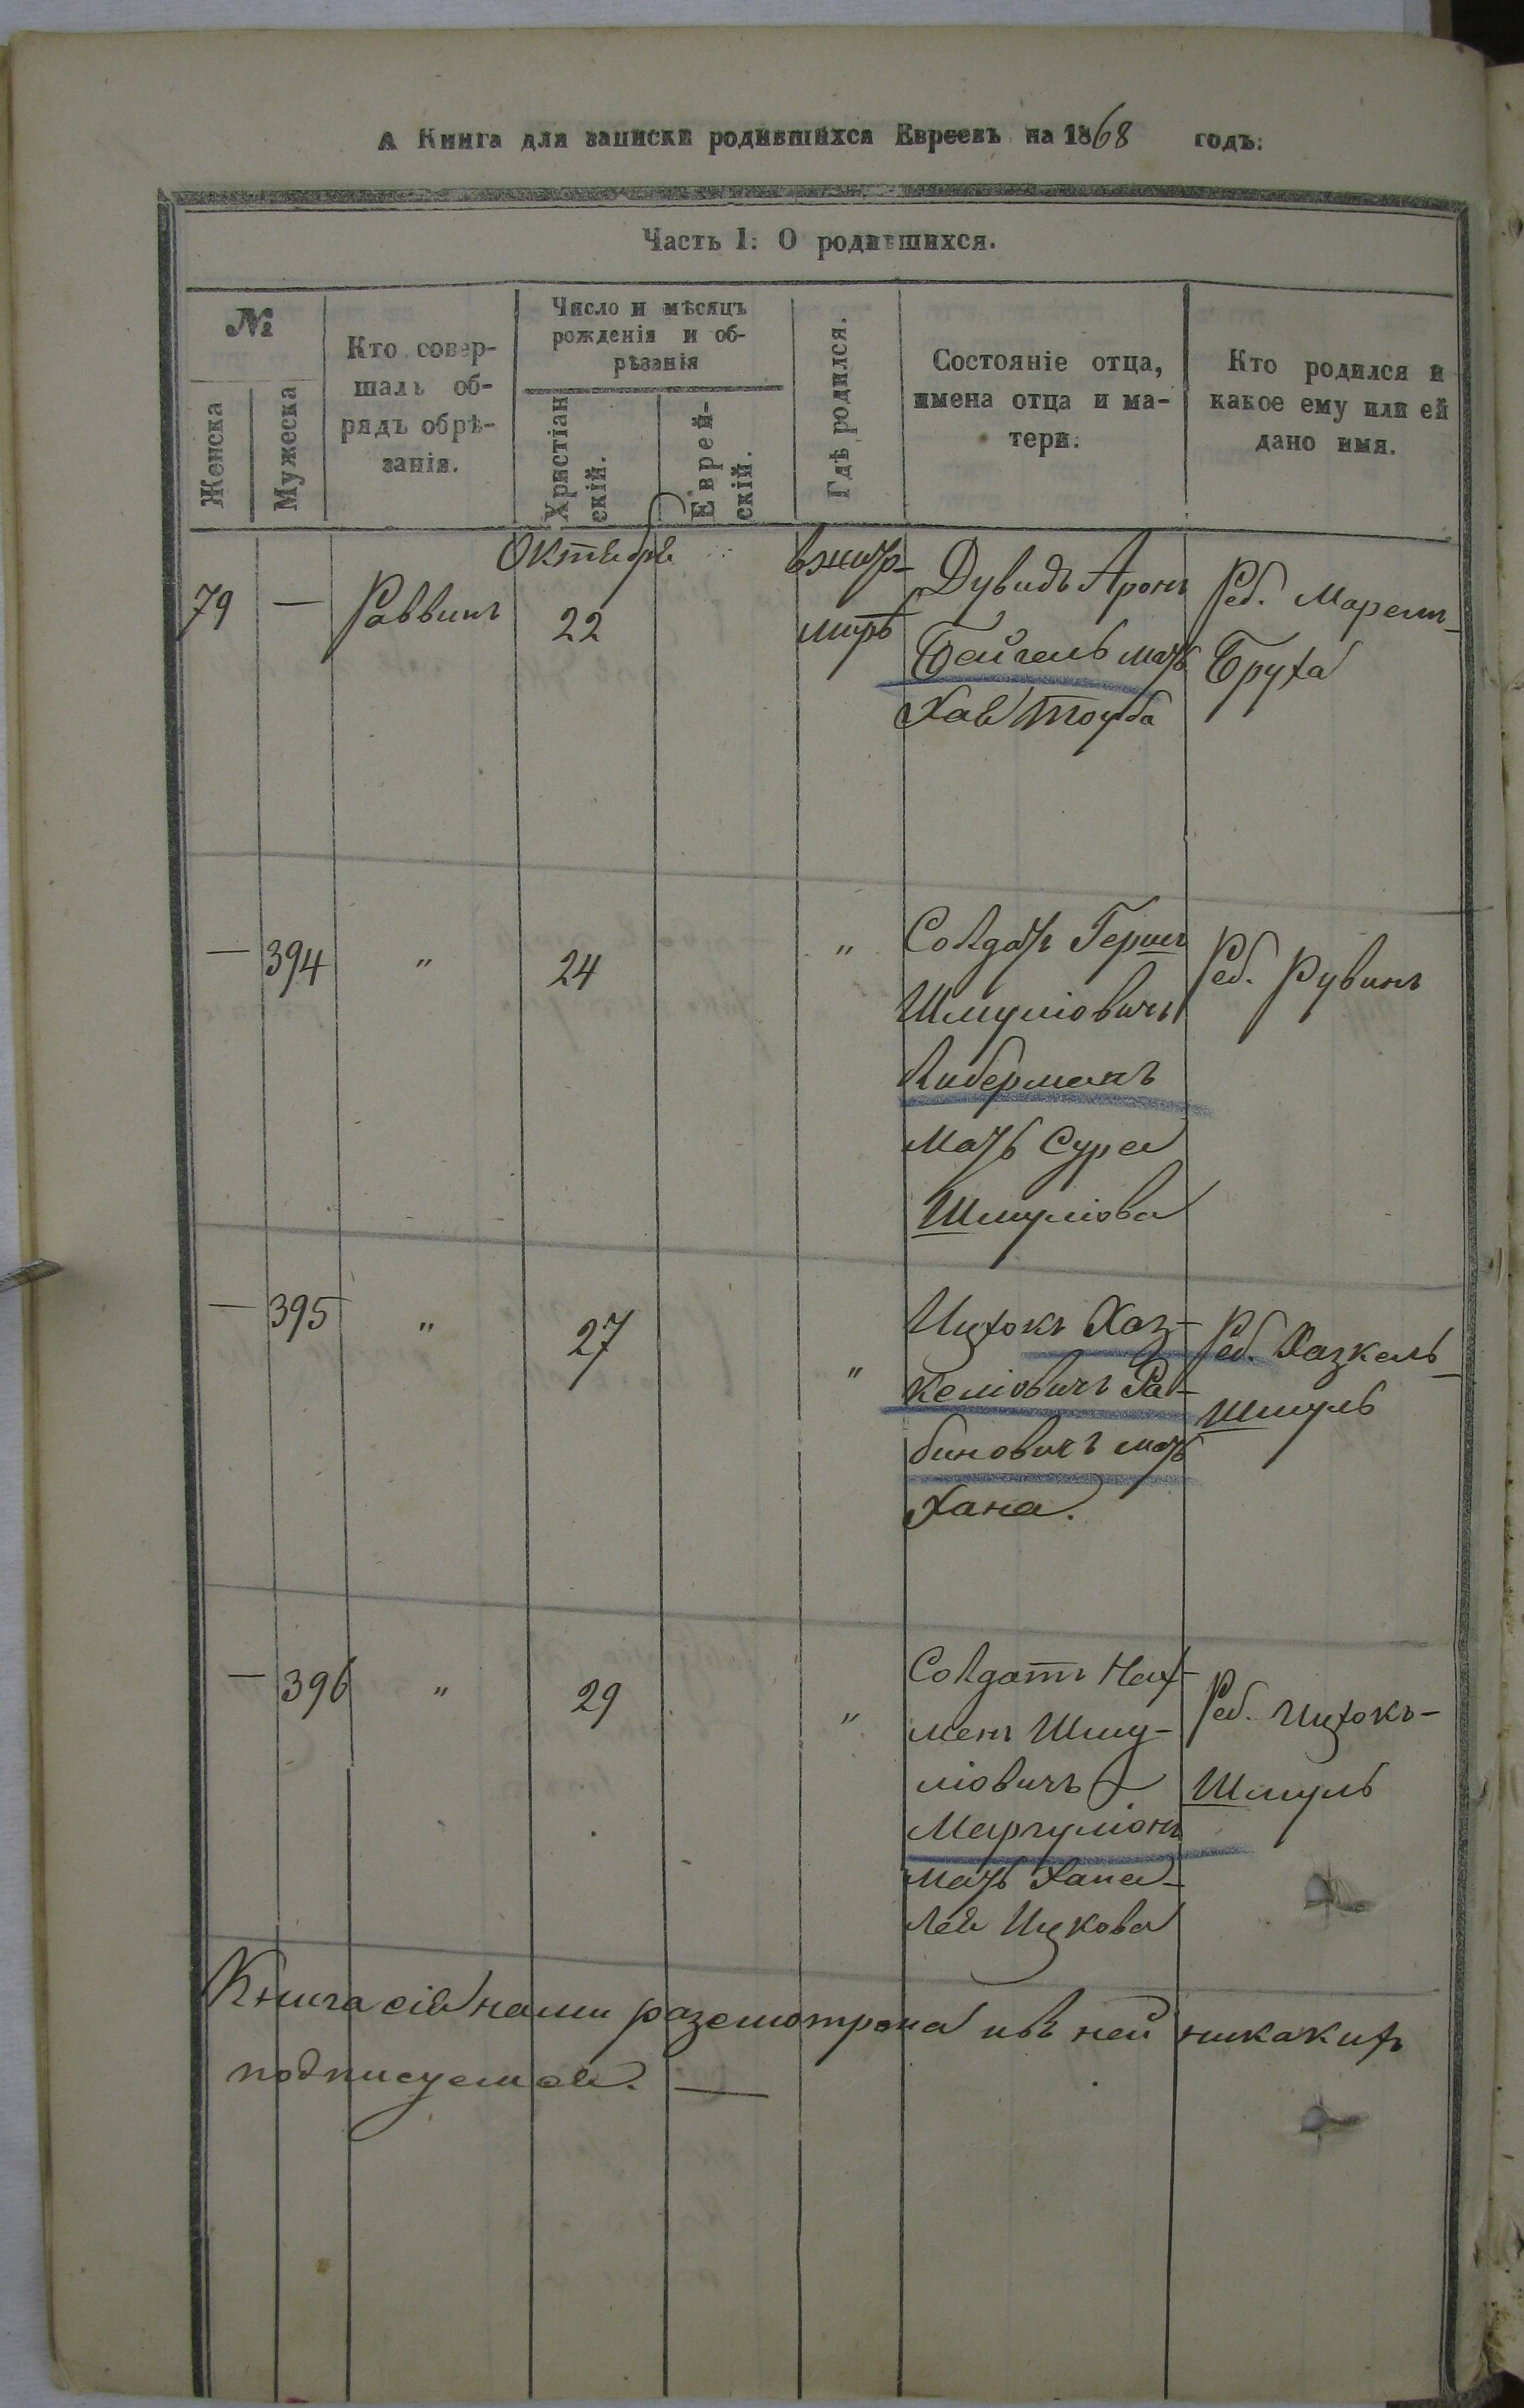 А Книга для записки родившихся Евреевъ на 1868 годъ:
Часть I: О родившихся.
№
Женска
Мужеска
Кто совер-
шалъ об-
рядъ обрѣ-
занія.
Число и мѣсяцъ
рожденія и об-
рѣзанія
Христіан
скій.
Еврей-
скій.
Гдѣ родился.
Состояніе отца,
имена отца и ма-
тери.
Кто родился и
какое ему или ей
дано имя.
Октября
79 — Раввинъ 22
вжит-
миръ
Дувидъ Аронъ
Бейгель мать
Хая Тоуба
Реб.
Бруха
— 394 " 24 "
Солдатъ Гершъ
Шмуліовичъ
Либерманъ
мать Сура
Шмуліова
Реб. Рувинъ
— 395 " 27 "
Ицхокъ Хаз-
келіовичъ Ра-
биновичъ мать
Хана.
Реб. Хазкель
Шмуль
— 396 " 29 "
Солдатъ Нах-
менъ Шму-
ліовичъ
Маргуліонъ
мать Хана-
Лея Ицкова
Реб. Ицхокъ-
Шмуль
Книга сія нами разсмотрена и въ ней никакихъ
подписуемся. —